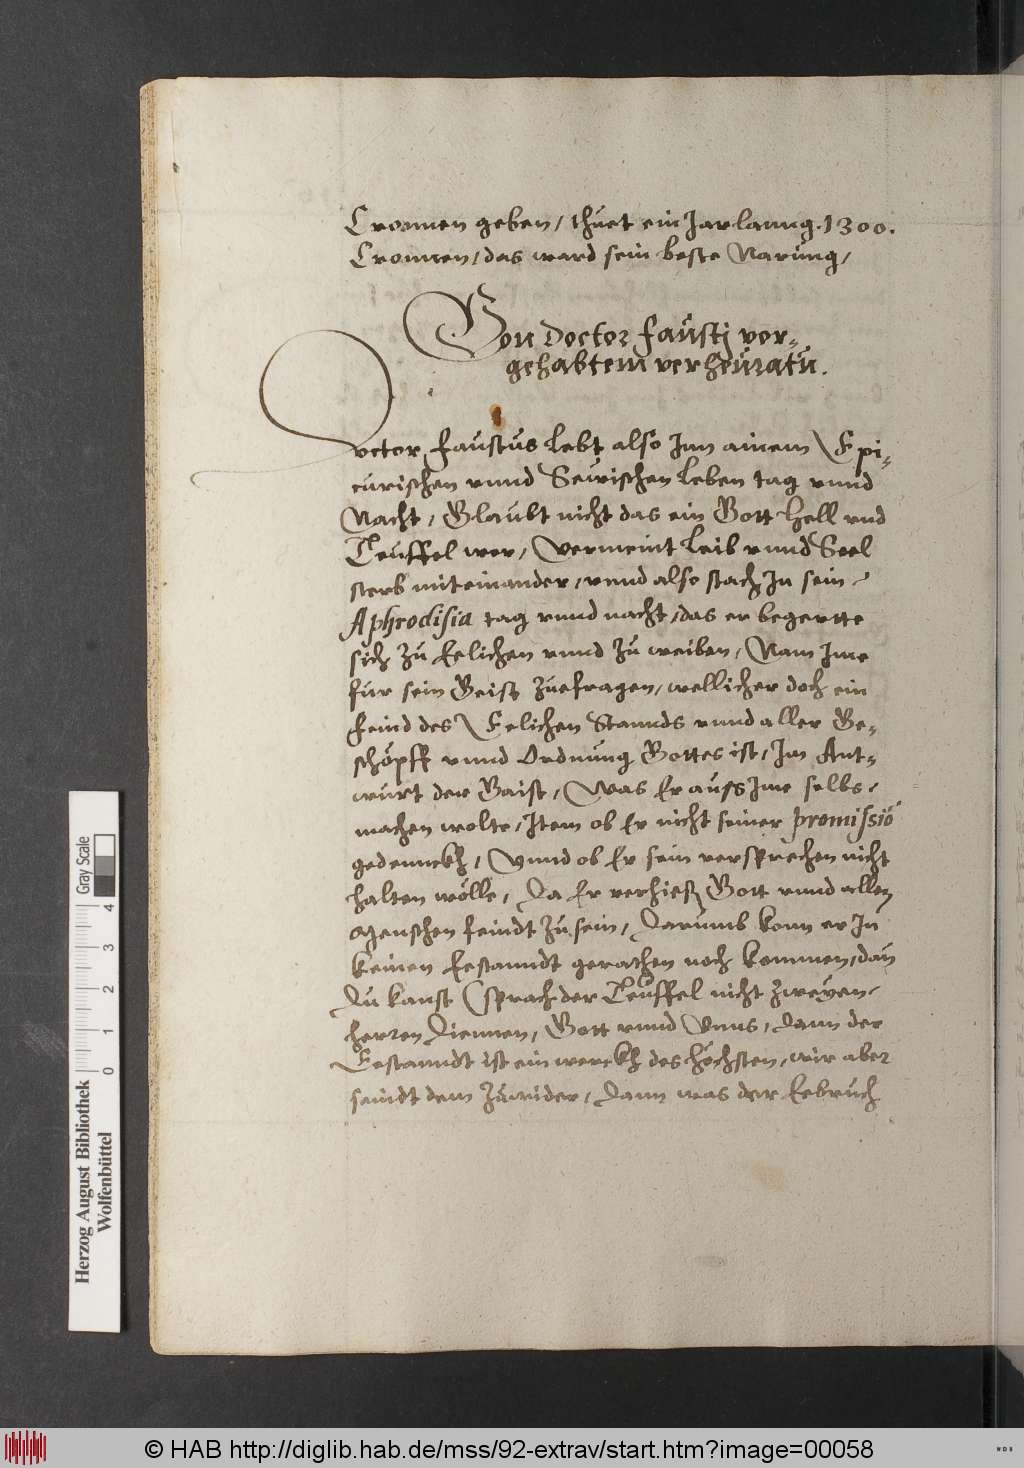 Cronnen geben, thuet ein Jar lanng. 1300.
Cronnen, das ward sein beste Narung,
Von Doctor Faustj vor-
gehabtem verheuratu.
Doctor Faustus lebt also Inn ainem Epi-
curischen vnnd Sewischen leben tag vnnd
Nacht, Glaubt nicht das ein Gott Hell vnd
Teuffel wer, Vermeint leib vnnd Seel
sterb mit einander, vnnd also stach In sein
Aphrodisia tag vnnd nacht, das er begertte
sich zu Eelichen vnnd zu weiben, Nam Ime
fur sein Geist zuefragen, wellicher doch ein
feind des Eelichen Stannds vnnd aller Ge-
schöpff vnnd Ordnung Gottes ist, Im Ant-
wurt der Gaist, Was Er auss Ime selbs
machen wolte, Item ob Er nicht seiner promissiõ
gedennckh, Vnnd ob Er sein versprechen nicht
halten wölle, Da Er verhieß Gott vnnd allen
Menschen feindt zu sein, Darumb konn er In
keinen Eestanndt gerathen noch kommen, dan
Du kanst (sprach der Teuffel nicht zweyen
herren Diennen, Gott vnnd Vnns, Dann der
Eestanndt ist ein werckh des höchsten, wir aber
seindt dem zuwider, Dann was der Eebruch
Gray Scale
0 1 2 3 4
Herzog August Bibliothek
Wolfenbüttel
© HAB http://diglib.hab.de/mss/92-extrav/start.htm?image=00058
WDB